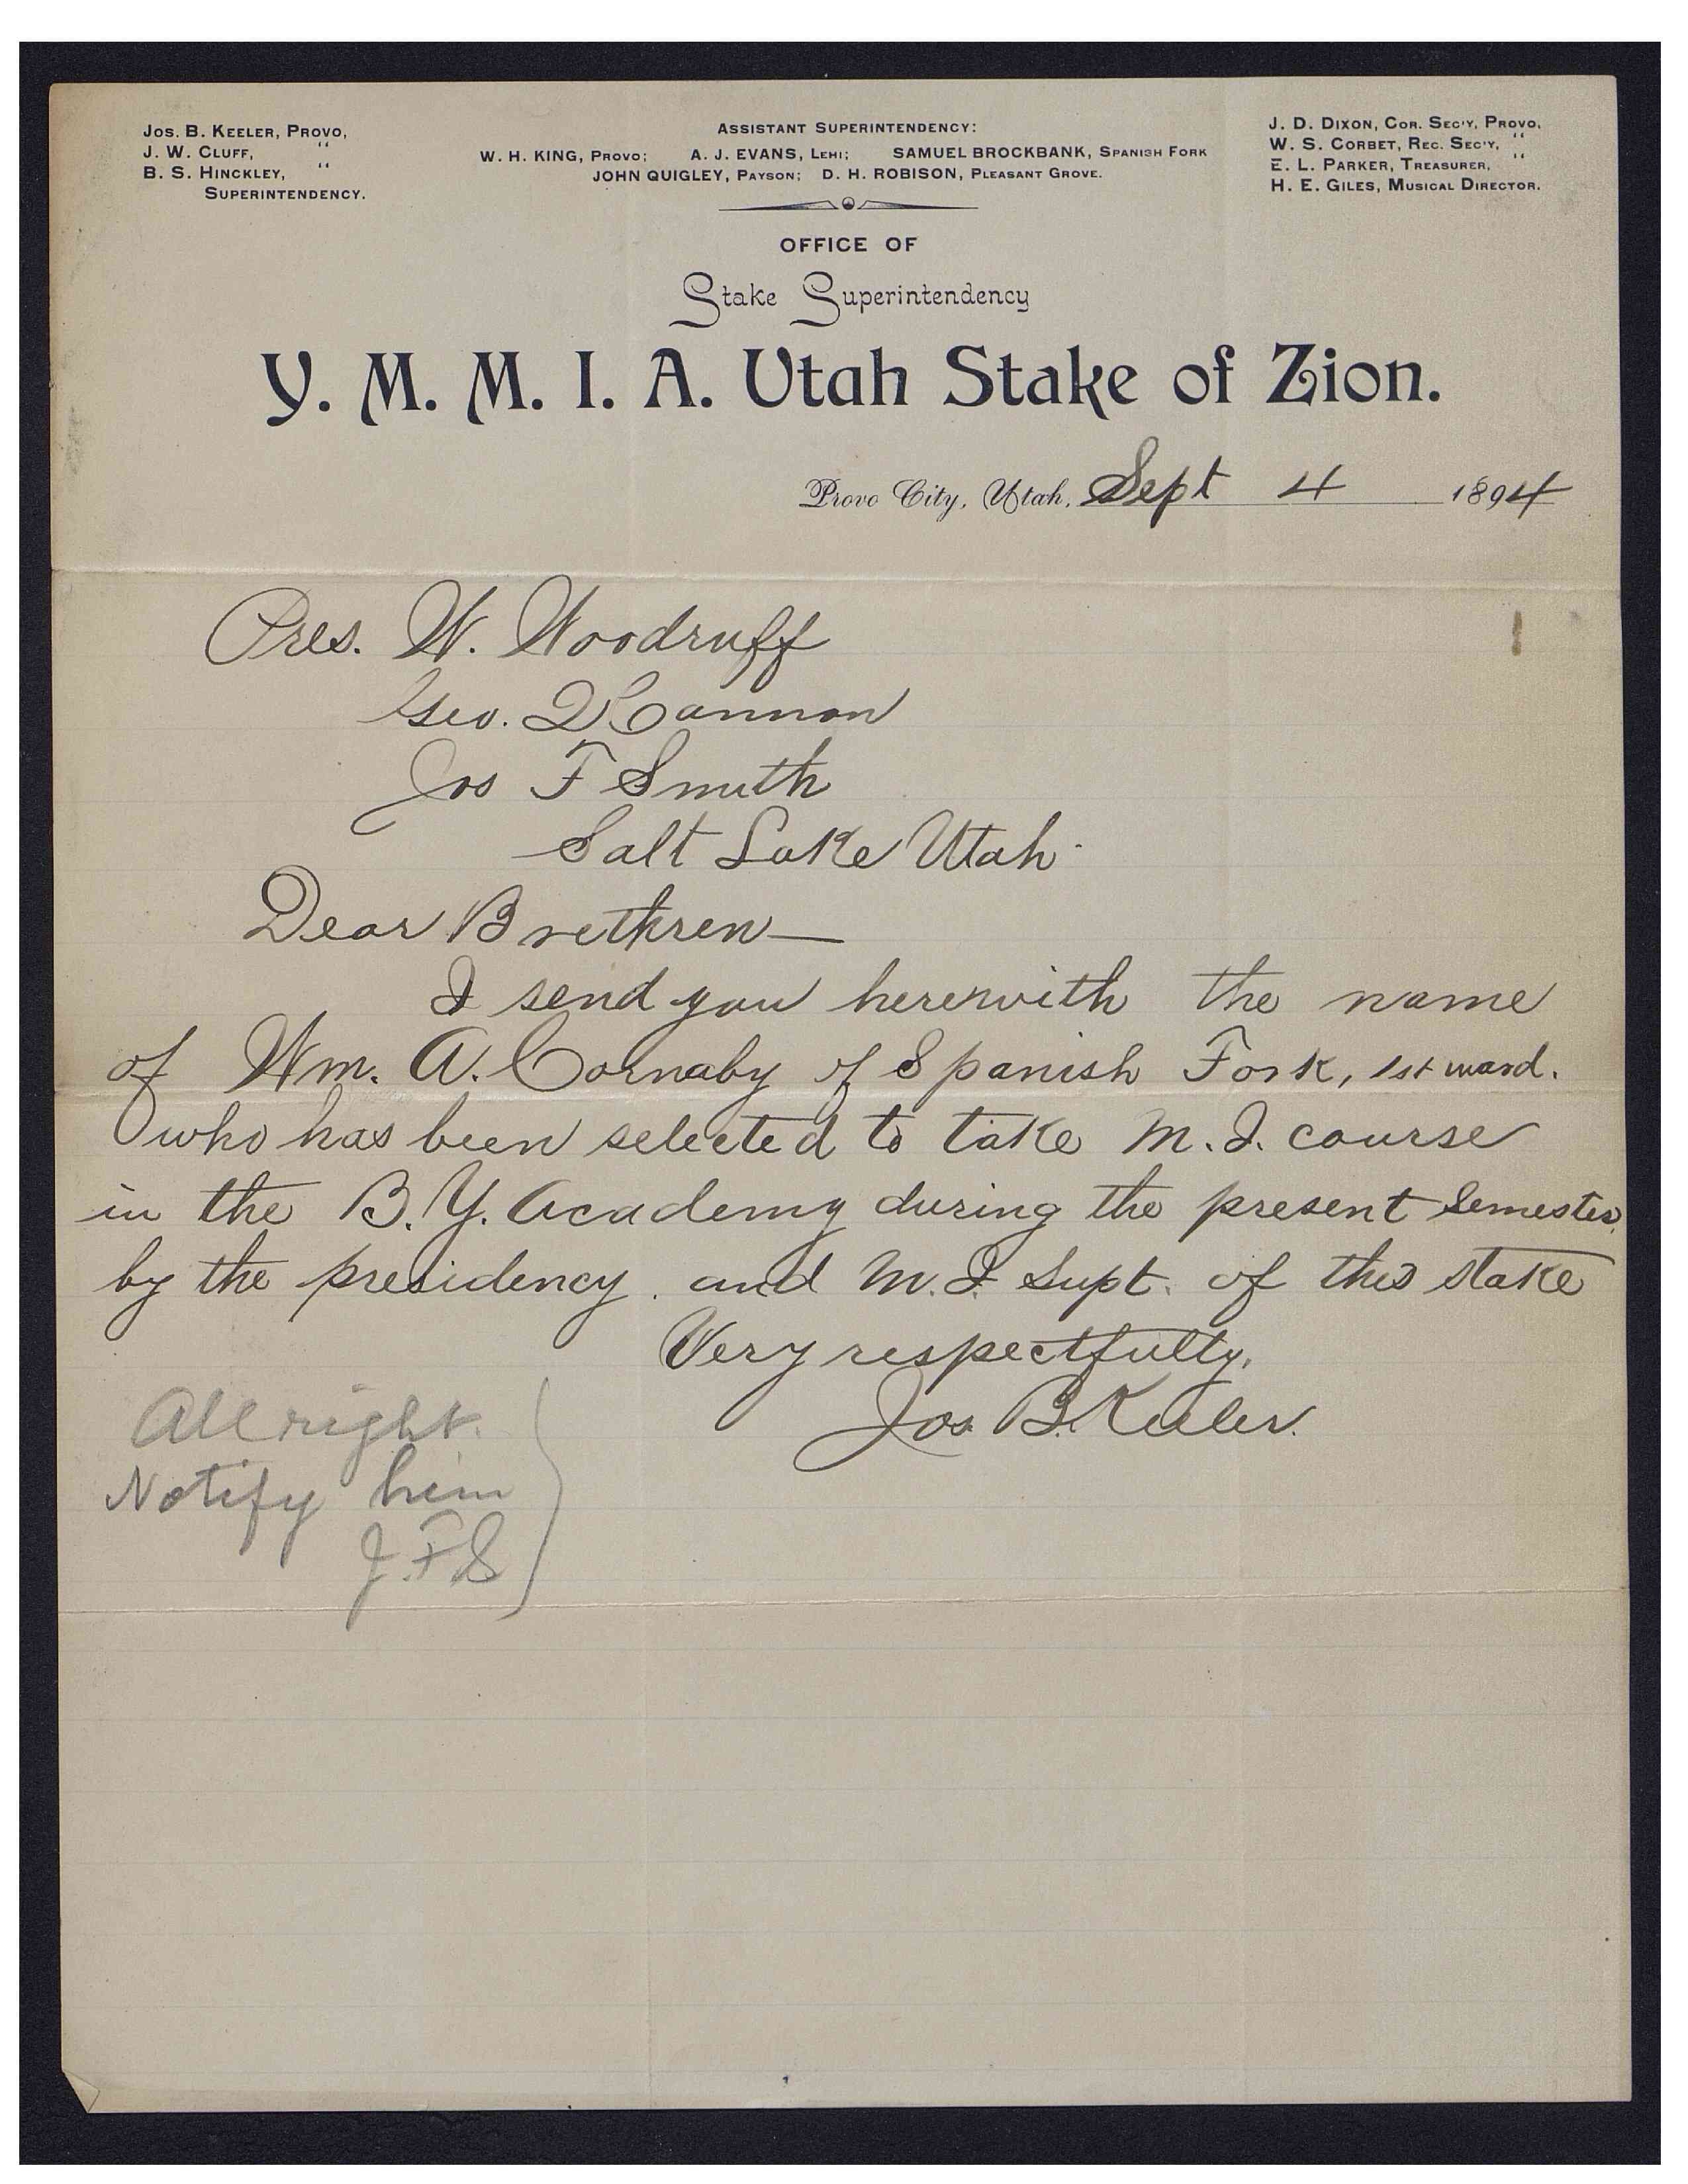 Jos. B. Keeler, Provo,
J. W. Cluff, "
B. S. Hinckley, "
Superintendency.
Assistant Superintendency:
W. H. KING, Provo; A. J. EVANS, Lehi; SAMUEL BROCKBANK, Spanish Fork
JOHN QUIGLEY, Payson; D. H. ROBISON, Pleasant Grove.
J. D. Dixon, Cor. Sec'y, Provo.
W. S. Corbet, Rec. Sec'y, "
E. L. Parker, Treasurer, "
H. E. Giles, Musical Director.
OFFICE OF
Stake Superintendency
Y. M. M. I. A. Utah Stake of Zion.
Provo City, Utah, Sept 4 1894
Pres. W. Woodruff
Geo. Q Cannon
Jos F Smith
Salt Lake Utah
Dear Brethren—
I send you herewith the name
of Wm. A. Cornaby of Spanish Fork, 1st ward.
who has been selected to take M. I. course
in the B. Y. Academy during the present semester
by the presidency and M. I. Supt. of this stake
Very respectfully,
Jos. B. Keeler.
All right.
Notify him
J. F S